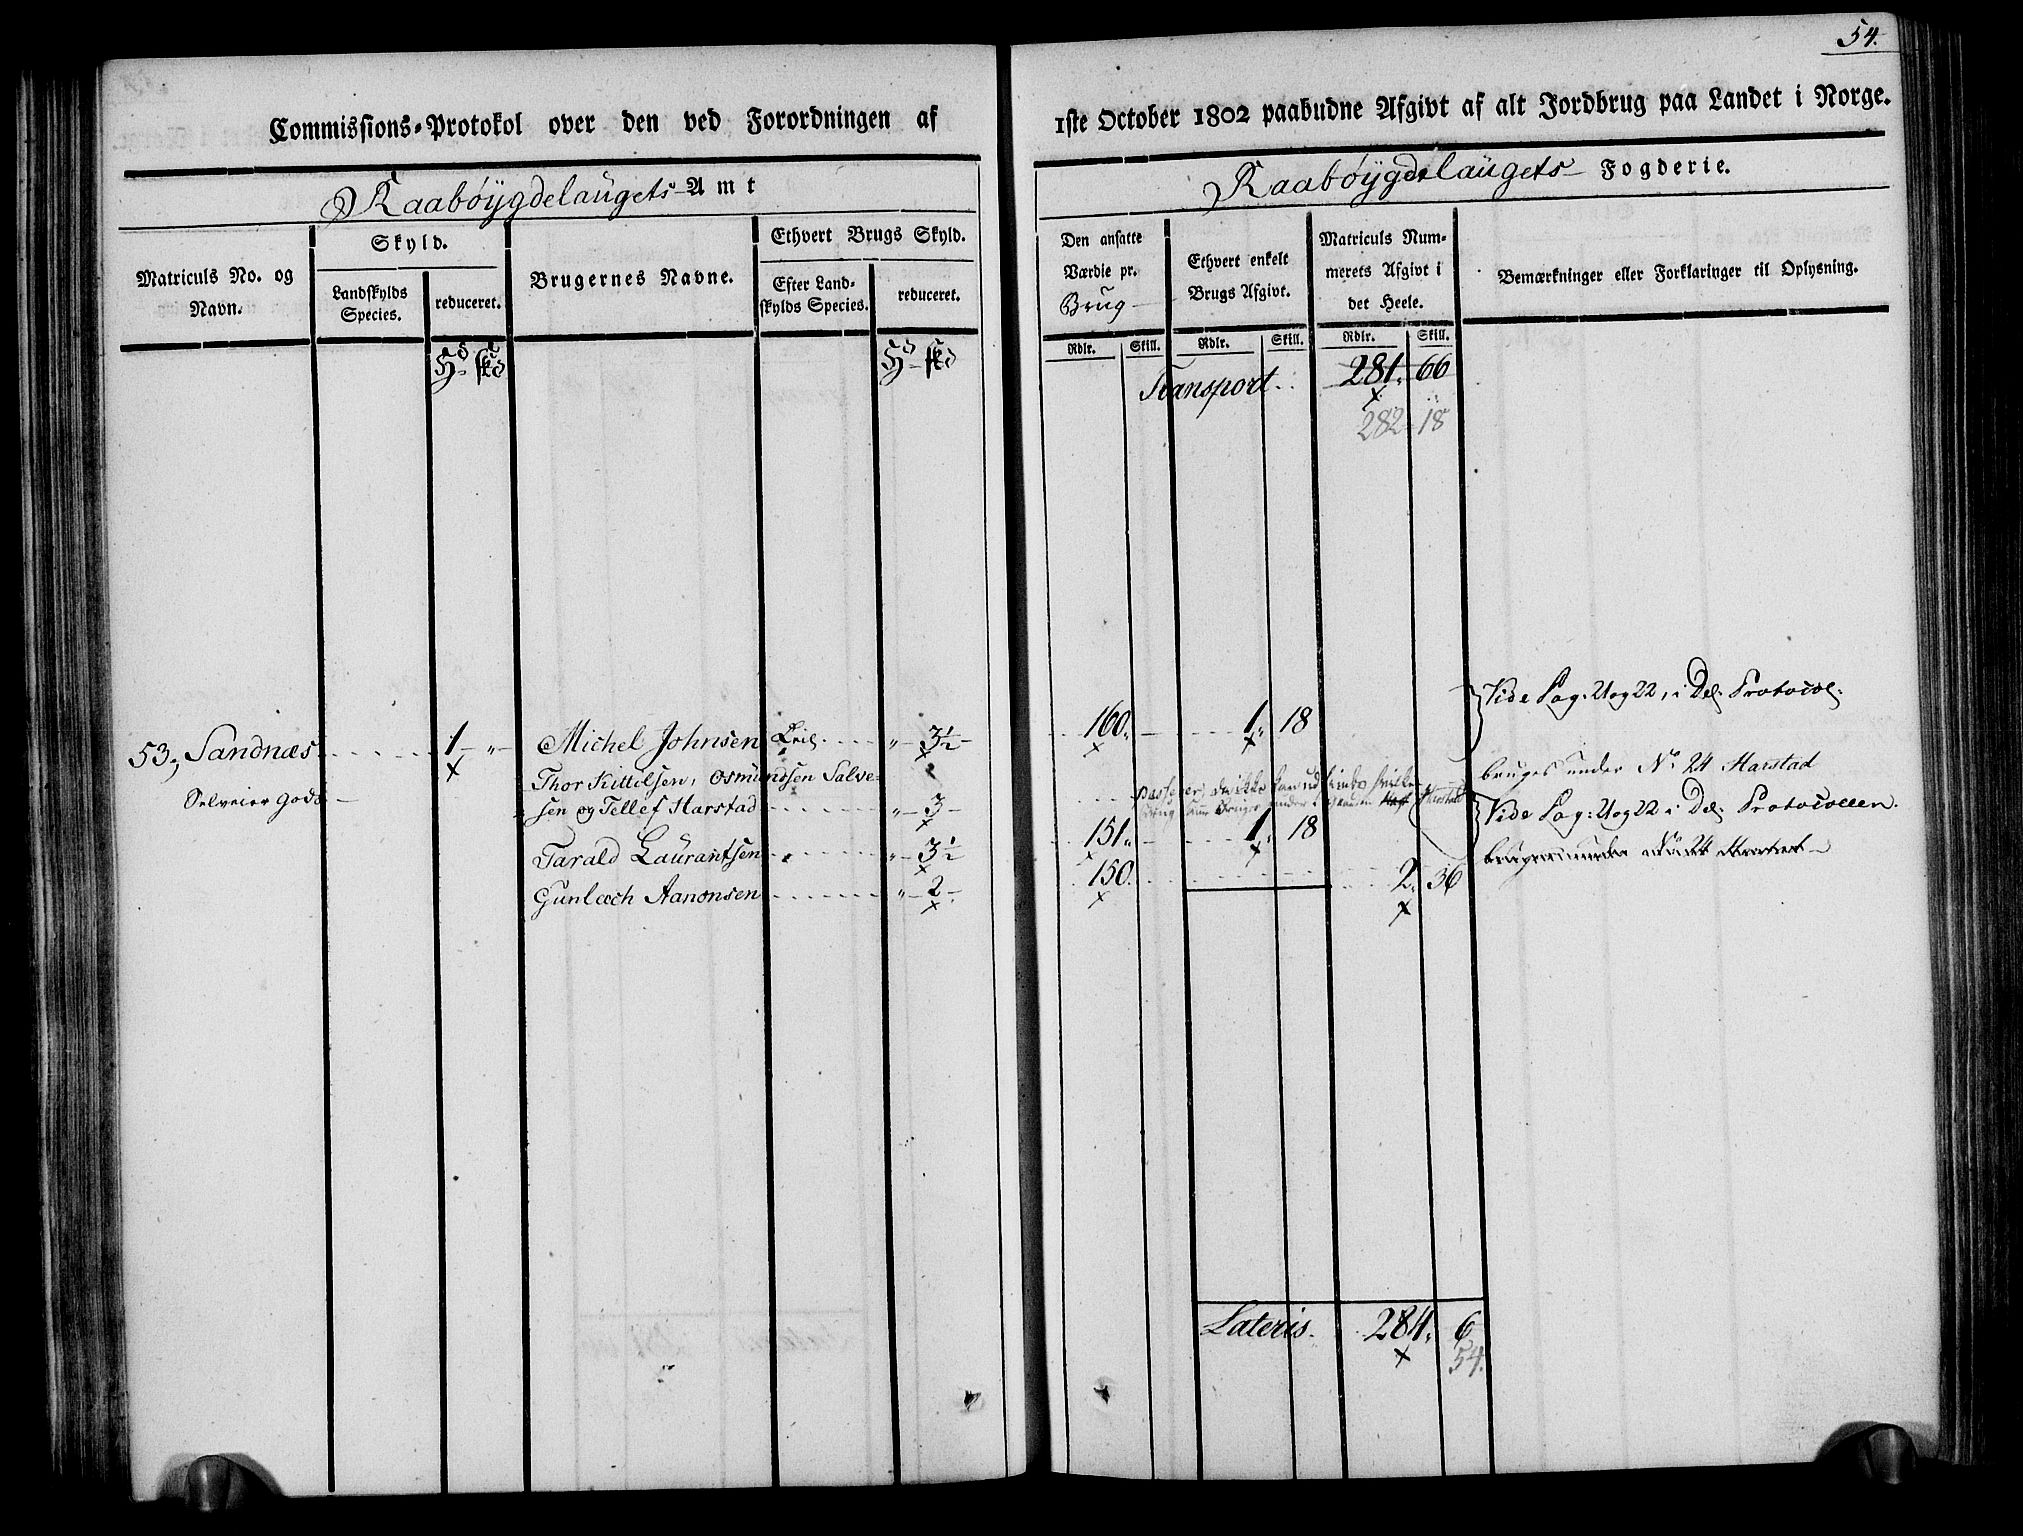 54.
Commissions-Protokol over den ved Forordningen af
1ste October 1802 paabudne Afgivt af alt Jordbrug paa Landet i Norge.
Raabøygdelaugets Amt
Raabøygdelaugets Fogderie.
Matriculs No. og Navn.
Skyld.
Landskylds Species.
reduceret.
Brugernes Navne.
Ethvert Brugs Skyld.
Efter Landskylds Species.
reduceret.
Den ansatte Værdie pr. Brug
Ethvert enkelt Brugs Afgivt.
Matriculs Nummerets Afgivt i det Heele.
Bemærkninger eller Forklaringer til Oplysning.
Rdlr. Skill. Rdlr. Skill. Rdlr. Skill.
Transport 281. 66
282 18
Vide Pag: 21 og 22, i Del. Protocol.
53, Sandnæs 1 - " - Michel Johnsen Leil. " - 3½ - 160. 1. 18
Selveier Gods
Thor Kittilsen, Osmundsen Salve-
sen og Tellef Harstad " - 3 -
bruges under No 24 Harstad
Tarald Laurantsen " - 3½ 151. 1. 18
Vide Pag: 21 og 22 i Del. Protocollen.
Gunlech Aanonsen " - 2 - 150. 2. 36
Lateris. 284. 6
54.